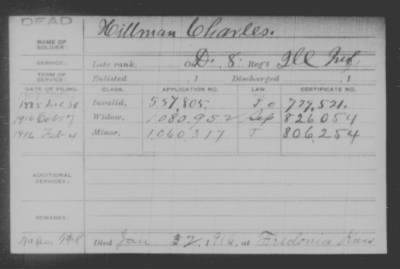 DEAD
NAME OF SOLDIER: Hillman Charles.
SERVICE: Late rank, Co. D. 8 Reg't Ill Inf.
TERM OF SERVICE: Enlisted , 1 Discharged , 1
DATE OF FILING. CLASS. APPLICATION NO. LAW. CERTIFICATE NO.
Invalid, 557,805.
Widow, 1080.952 826054
1916 Feb 4 Minor, 1060.317 806.254
ADDITIONAL SERVICES:
REMARKS:
Died Jan 22, 191 , at Fredonia Kans